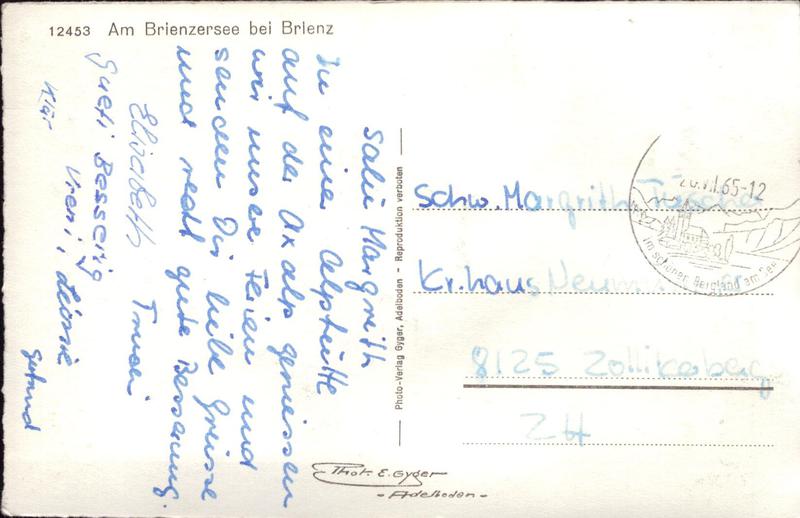 12453 Am Brienzersee bei Brienz
Salü Margrith
In einer Alphütte
auf der Axalp geniessen
wir unsere Ferien und
senden Dir liebe Grüsse
und recht gute Besserung.
Elisabeth Trudi
Gueti Besserig
Vreni,
Klär
Gertrud
Photo-Verlag Gyger, Adelboden - Reproduktion verboten
Schw. Margrith
Kr.haus
8125 Zollikerberg
ZH
65-12
im schönen Bergland am See
Phot. E. Gyger
- Adelboden -